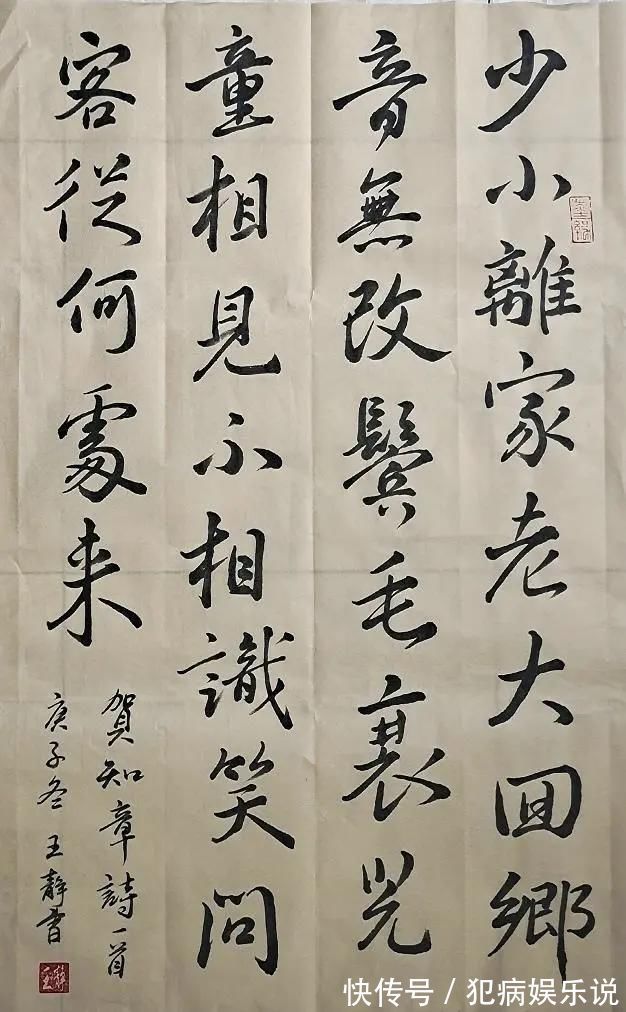 少小離家老大回鄉
音無改鬢毛衰兒
童相見不相識笑問
客從何處来
賀知章詩一首
庚子冬王靜書
快传号/犯病娱乐说